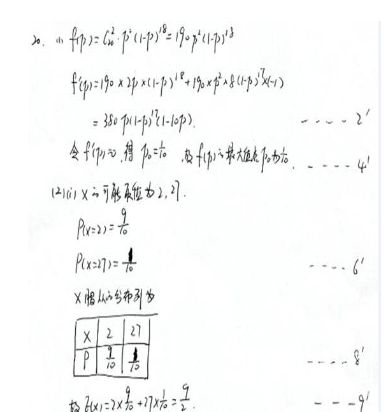 20. (1) f(p)=C₂₀²·p²(1-p)¹⁸=190p²(1-p)¹⁸
f'(p)=190×2p×(1-p)¹⁸+190×p²×18(1-p)¹⁷×(-1)
=380p(1-p)¹⁷(1-10p). ---- 2'
令f'(p)=0,得 p₀=1/10 ,故f(p)的最大值点p₀为1/10. ---- 4'
(2)(i) X的可能取值为2,27.
P(X=2)=9/10
P(X=27)=1/10 ---- 6'
X 的分布列为
X 2 27
P 9/10 1/10 ---- 8'
故E(X)=2×9/10+27×1/10=9/2. ---- 9'